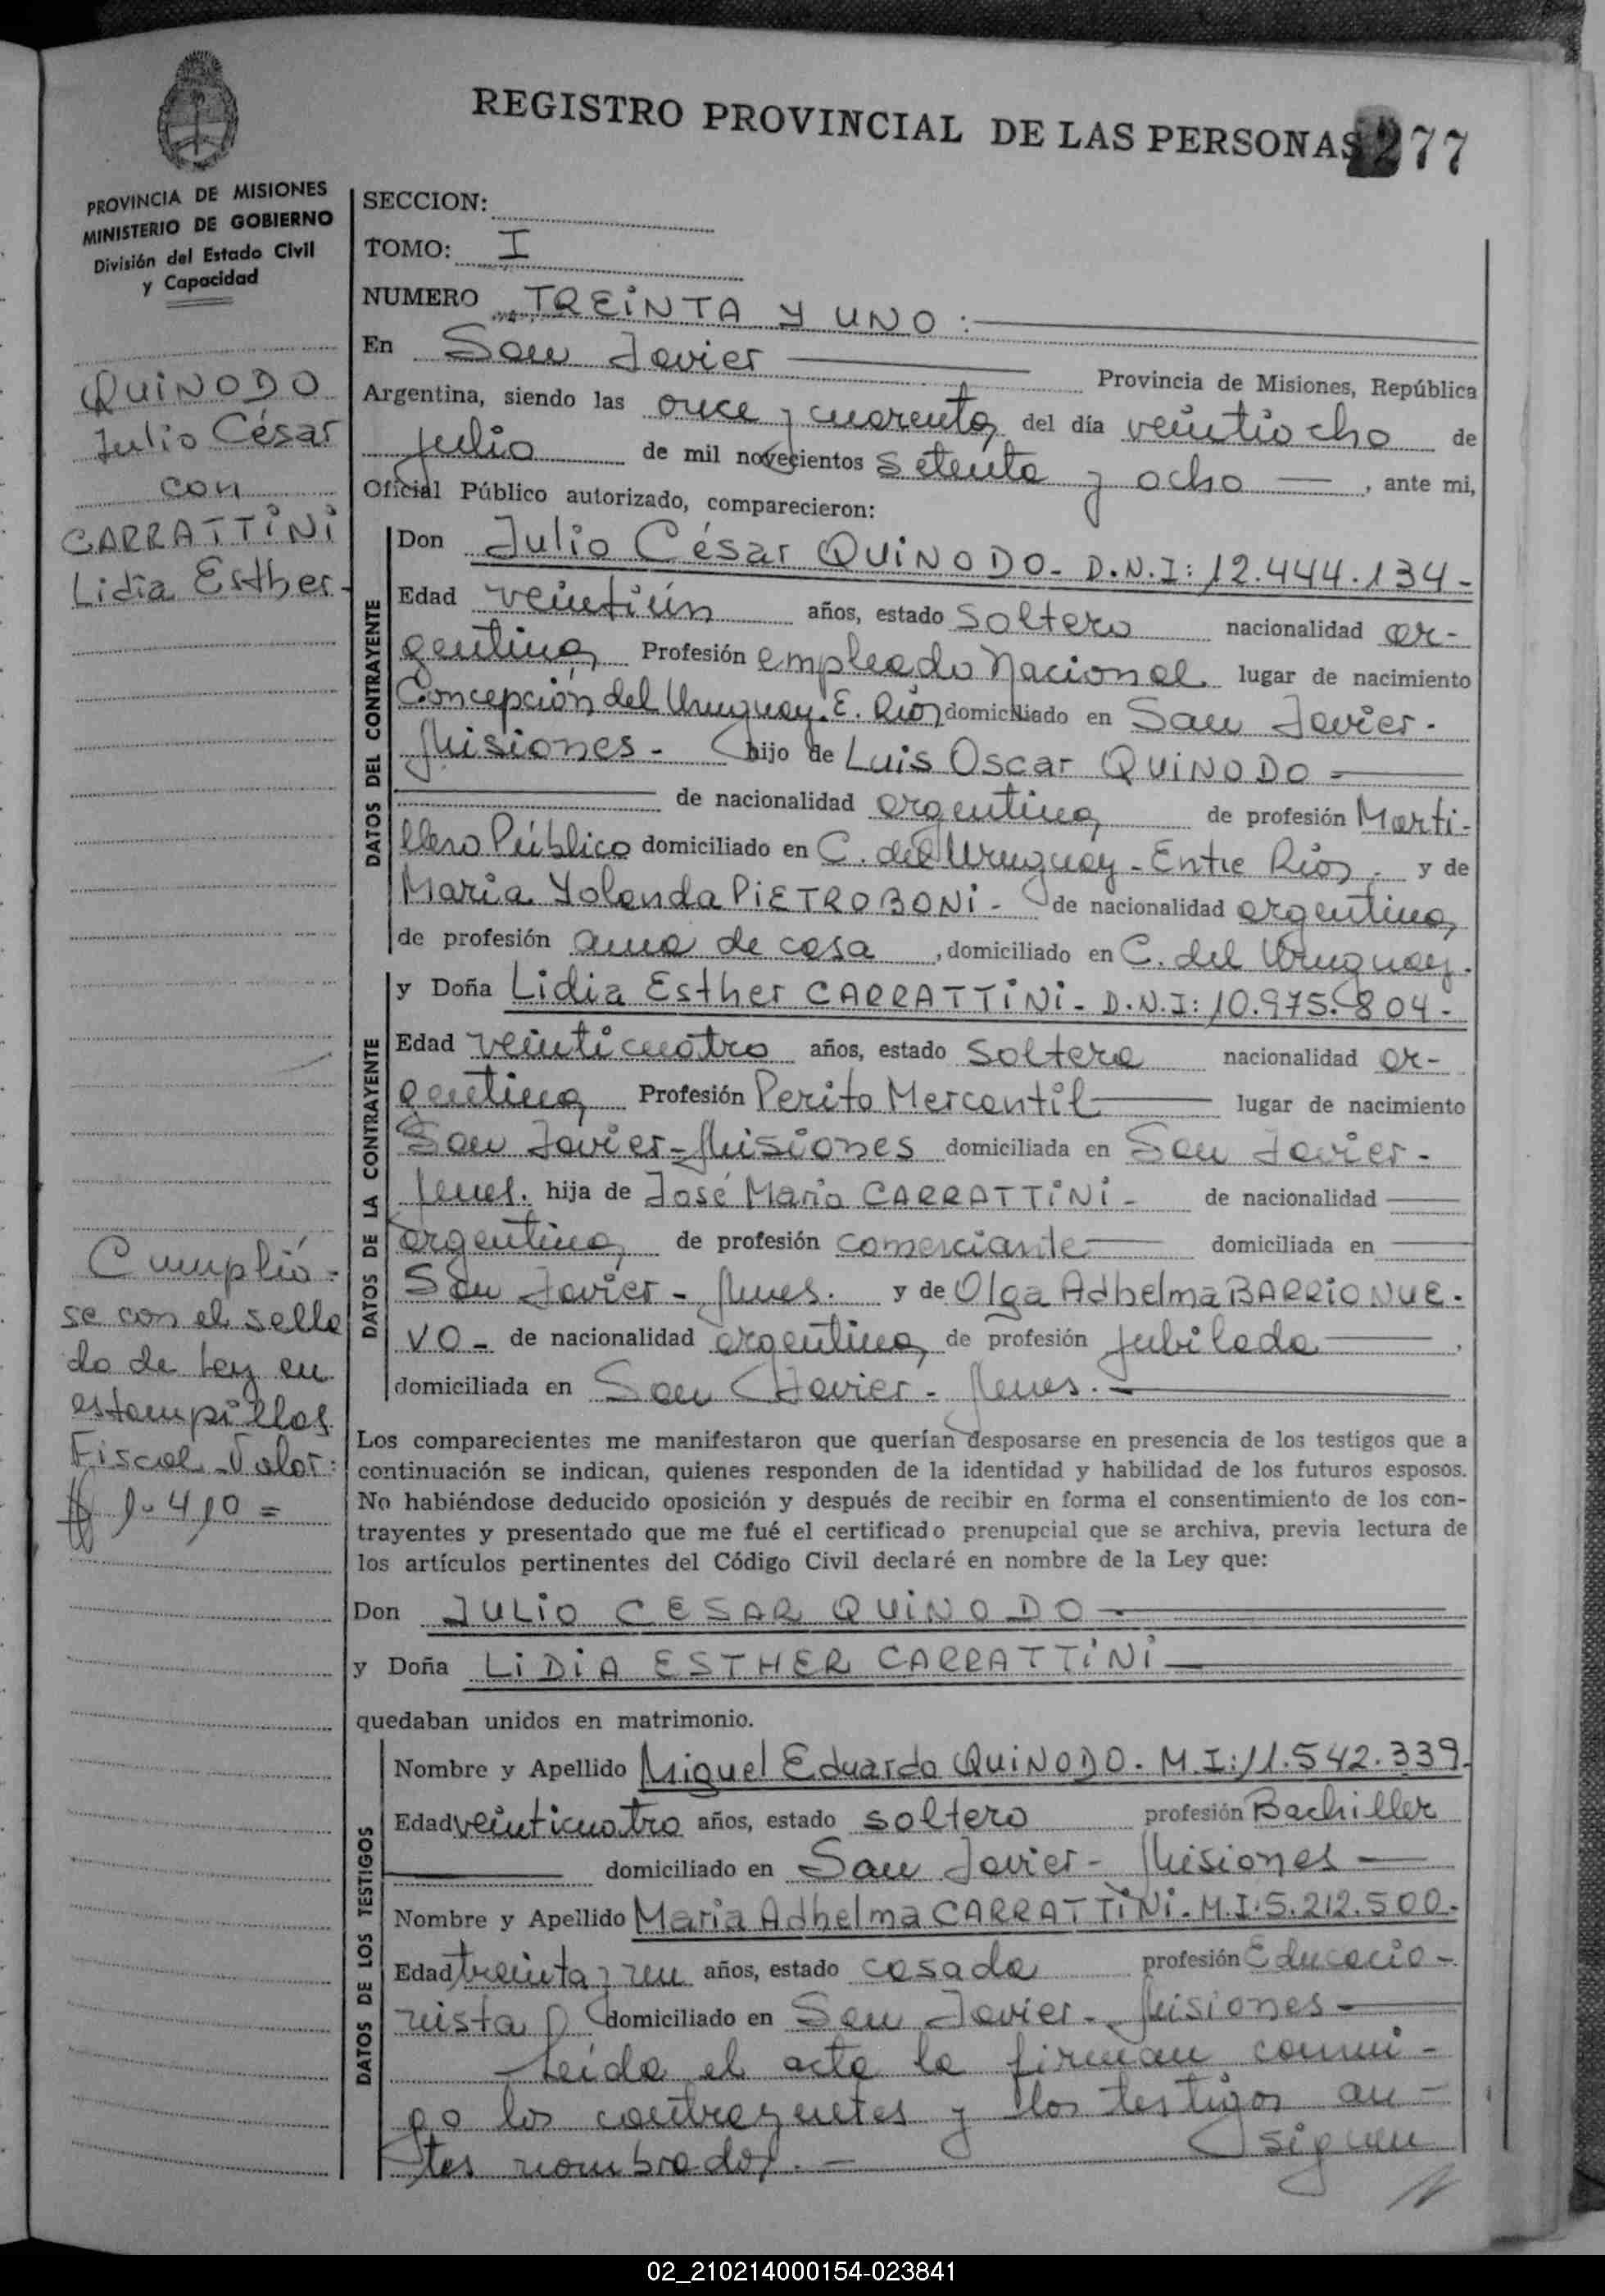 REGISTRO PROVINCIAL DE LAS PERSONAS 277
PROVINCIA DE MISIONES
MINISTERIO DE GOBIERNO
División del Estado Civil
y Capacidad
QUINODO
Julio César
con
CARRATTINI
Lidia Esther-
Cumplió-
se con el sella
do de Ley en
estampillas
Fiscal-Valor:
$ 1.410=
SECCION:
TOMO: I
NUMERO TREINTA Y UNO:
En San Javier Provincia de Misiones, República
Argentina, siendo las once y cuarenta del día veintiocho de
julio de mil novecientos setenta y ocho , ante mi,
Oficial Público autorizado, comparecieron:
DATOS DEL CONTRAYENTE
Don Julio César QUINODO- D.N.I: 12.444.134-
Edad veintiún años, estado soltero nacionalidad ar-
gentina Profesión empleado Nacional lugar de nacimiento
Concepción del Uruguay. E. Ríos domiciliado en San Javier-
Misiones- hijo de Luis Oscar QUINODO-
de nacionalidad argentina de profesión Marti-
llero Público domiciliado en C. del Uruguay-Entre Ríos. y de
Maria Yolanda PIETROBONI- de nacionalidad argentina,
de profesión ama de casa , domiciliado en C. del Uruguay.
DATOS DE LA CONTRAYENTE
y Doña Lidia Esther CARRATTINI- D.N.I: 10.975.804-
Edad veinticuatro años, estado soltera nacionalidad ar-
gentina Profesión Perito Mercantil lugar de nacimiento
San Javier-Misiones domiciliada en San Javier-
Mnes. hija de José Maria CARRATTINI- de nacionalidad
argentina, de profesión comerciante domiciliada en
San Javier- Mnes. y de Olga Adhelma BARRIONUE-
VO- de nacionalidad argentina, de profesión jubilada ,
domiciliada en San Javier- Mnes.-
Los comparecientes me manifestaron que querían desposarse en presencia de los testigos que a
continuación se indican, quienes responden de la identidad y habilidad de los futuros esposos.
No habiéndose deducido oposición y después de recibir en forma el consentimiento de los con-
trayentes y presentado que me fué el certificado prenupcial que se archiva, previa lectura de
los artículos pertinentes del Código Civil declaré en nombre de la Ley que:
Don JULIO CESAR QUINODO
y Doña LIDIA ESTHER CARRATTINI
quedaban unidos en matrimonio.
DATOS DE LOS TESTIGOS
Nombre y Apellido Miguel Eduardo QUINODO. M.I: 11.542.339.
Edad veinticuatro años, estado soltero profesión Bachiller
domiciliado en San Javier- Misiones
Nombre y Apellido Maria Adhelma CARRATTINI. M.I. 5.212.500.
Edad treinta y un años, estado casada profesión Educacio-
nista domiciliado en San Javier- Misiones-
Leída el acta la firman conmi-
go los contrayentes y los testigos an-
tes nombrados.- siguen
02_210214000154-023841